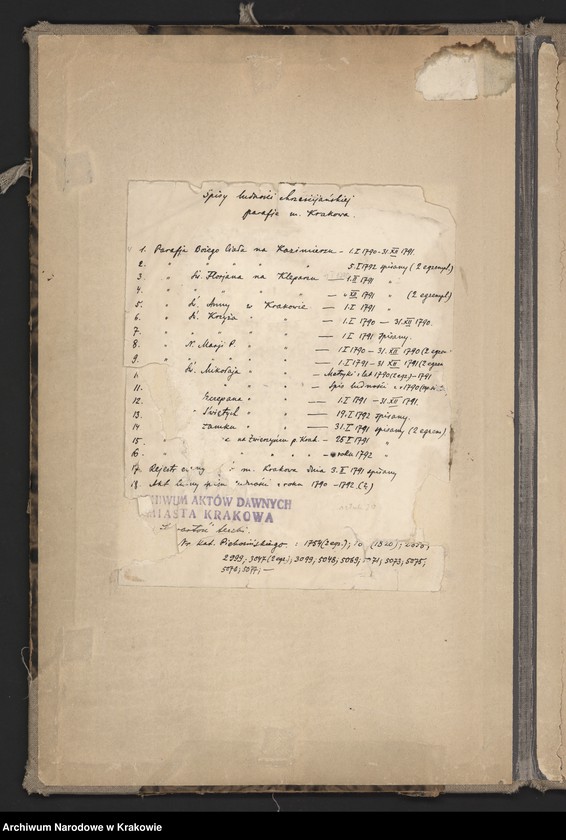 Spisy ludności chrześcijańskiej
parafje m. Krakowa.
1. Parafja Bożego Ciała na Kazimierzu - 1.I 1790-31.XII 1791.
2. " " " " 5.I 1792 spisany (2 egzempl)
3. " św. Florjana na Kleparzu — 1.II 1791 "
4. " " " " " XII 1791 " (2 egzempl)
5. " św. Anny w Krakowie — 1.I 1791 "
6. " św. Krzyża " " — 1.I 1790 — 31.XII 1790.
7. " " " " — 1.I 1791 spisany.
8. " N. Marji P. " " — 1.I 1790 — 31.XII 1790 (2 egzem
9. " " " " — 1.I 1791 - 31 XII 1791 (2 egzem
1 św. Mikołaja " " — Metryki z lat 1790 (2 egz.) - 1791
11. " " " — Spis ludności z r 1790
12. Szczepana " " — 1.I 1791 — 31.XII 1791.
13. " Świętych " " — 19.I 1792 spisany.
14 zamku " " — 31.I 1791 spisany (2 egzem)
15. " na Zwierzyńcu p. Krak - 25.I 1791 "
16. " " " " " roku 1792 "
17. Rejestr m. Krakowa dnia 3.V 1791 spisany
18. Akt spisu ludności z roku 1790 - 1792.
HIWUM AKTÓW DAWNYCH
MIASTA KRAKOWA
Nr. kat. Piekosińskiego : 1754 (2 egz.);
2999; 3047 (2 egz.); 3099, 5048; 5069; 5071; 5073; 5075,
5076; 5077; —
Archiwum Narodowe w Krakowie